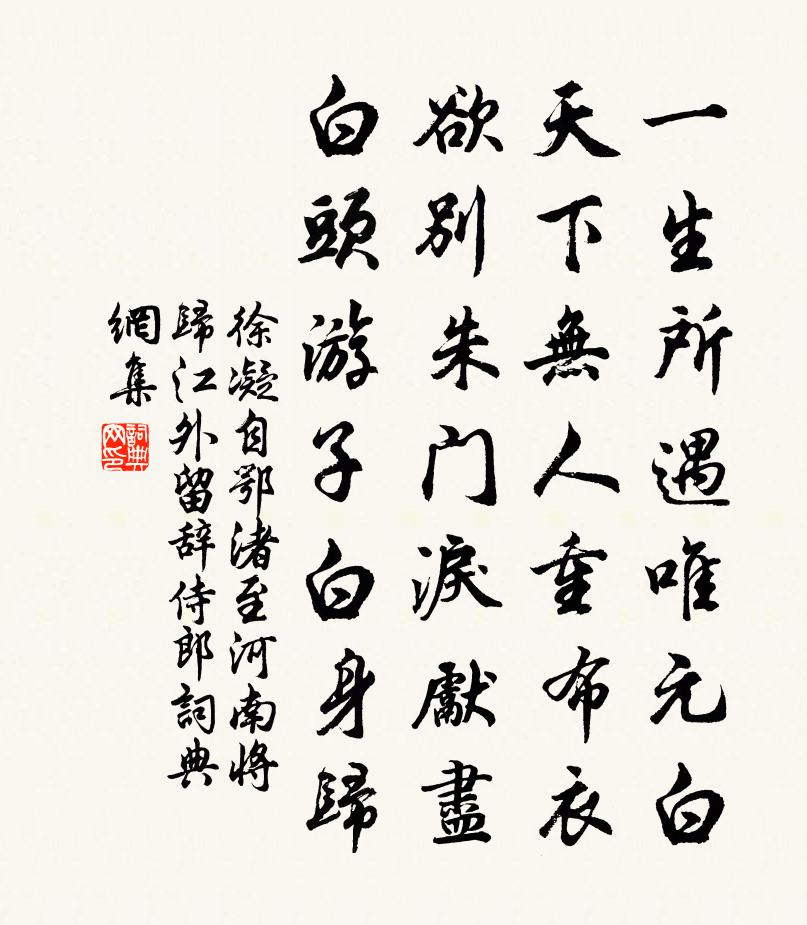 一生所遇唯元白
天下無人重布衣
欲別朱门淚獻盡
白頭游子白身歸
徐凝自鄂渚至河南將
歸江外留辞侍郎詞典
網集
詞典
网印